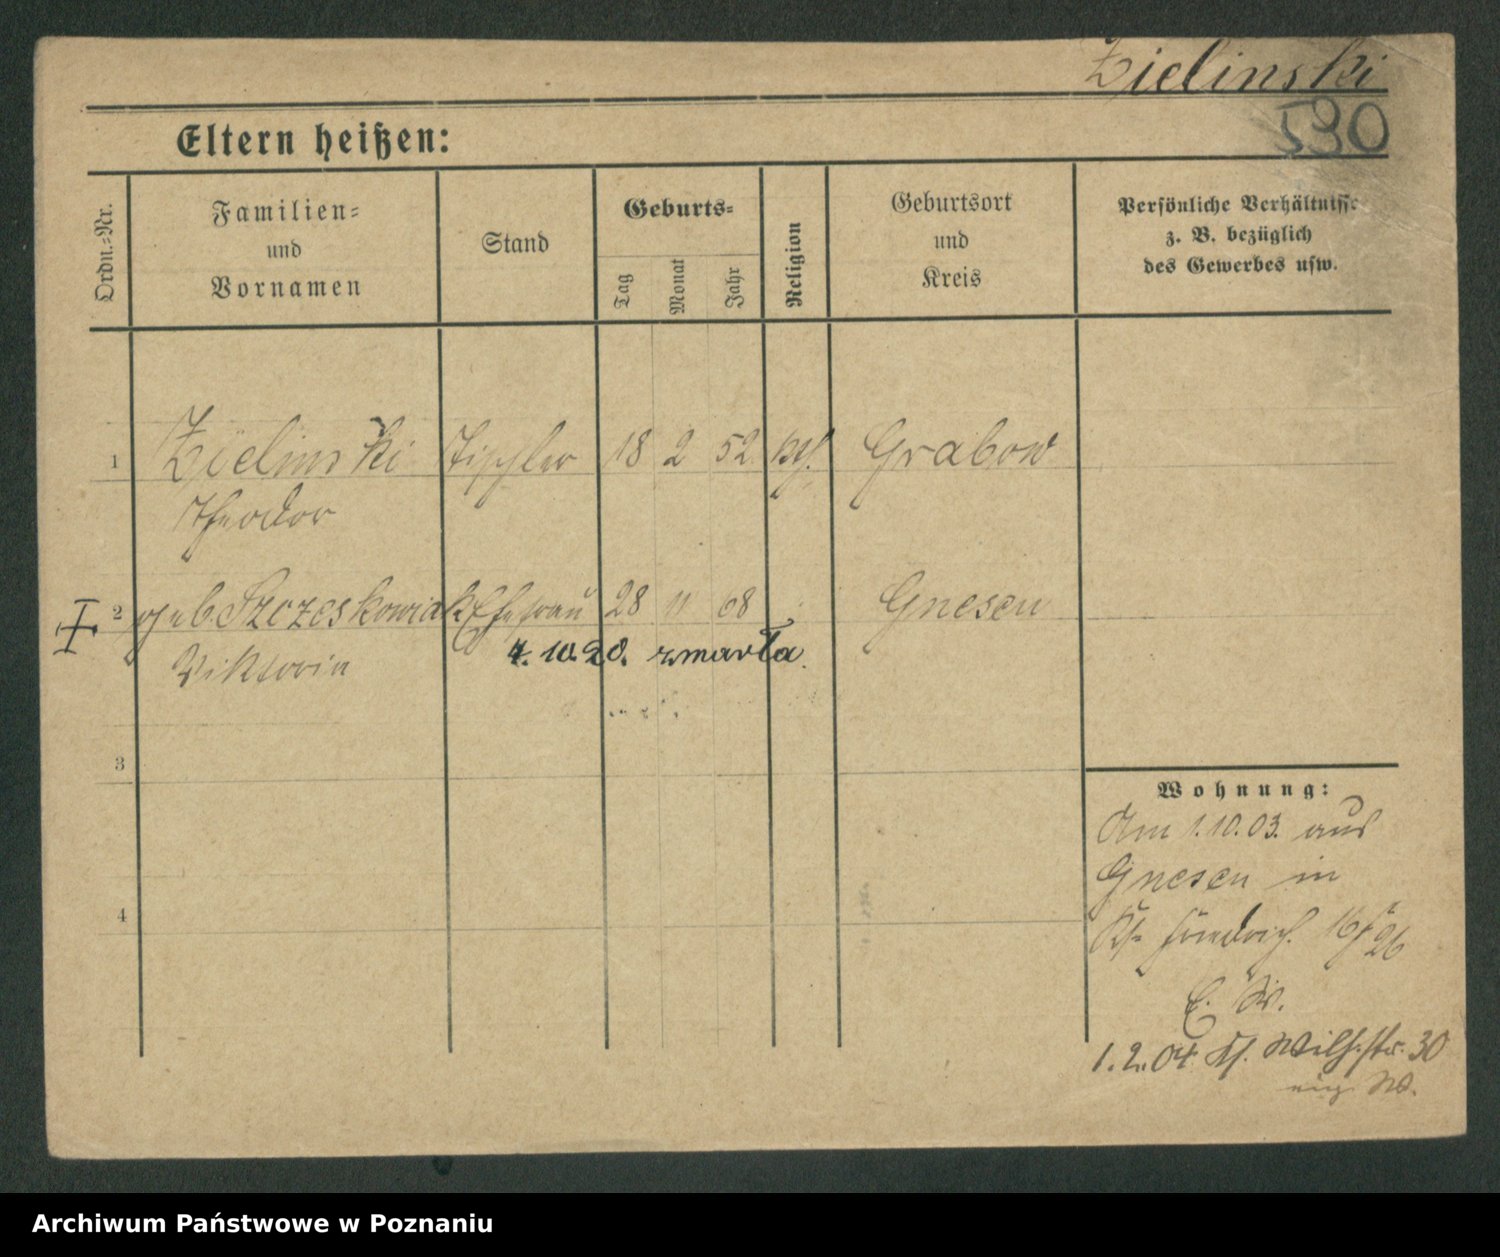 Zielinski
530
Eltern heißen:
Ordn.=Nr.
Familien=
und
Vornamen
Stand
Geburts=
Tag
Monat
Jahr
Religion
Geburtsort
und
Kreis
Persönliche Verhältnisse
z. B. bezüglich
des Gewerbes usw.
1 Zielinski Tischler 18 2 52 kth. Grabow
Theodor
2 geb. Szczeskowiak Ehefrau 28 11 68 Gnesen
Viktoria 4.10.20. zmarła
3
4
Wohnung:
Am 1.10.03. aus
Gnesen in
Friedrich. 16/26
E. W.
1.2.04 Wilh.str. 30
eig. W.
Archiwum Państwowe w Poznaniu